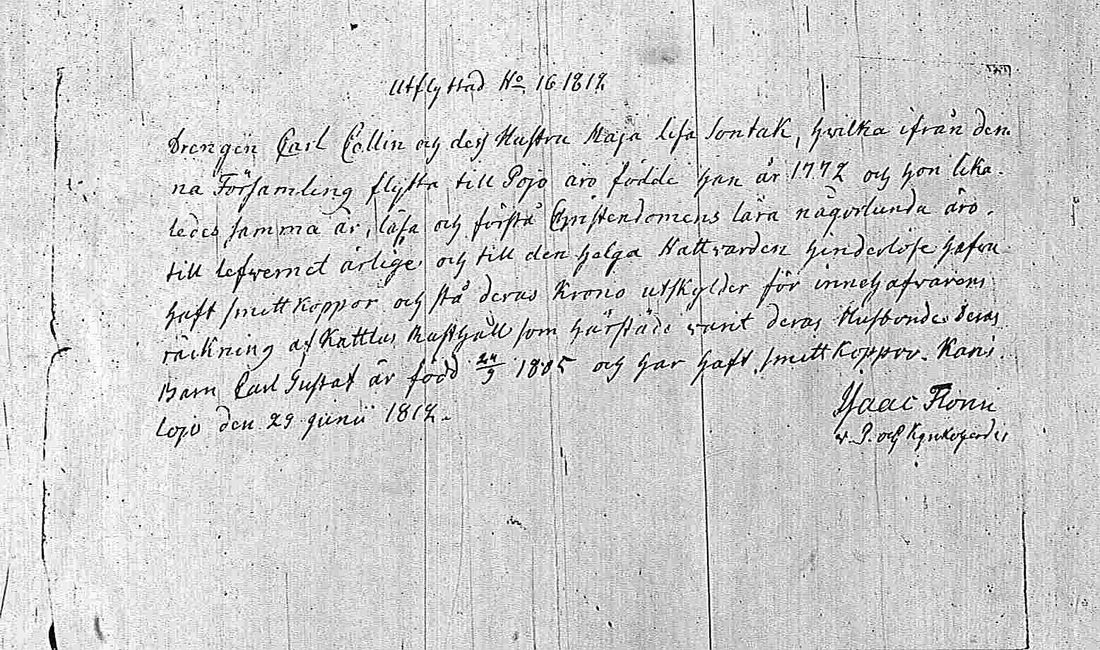 Utflyttad No 16 1812
Drengen Carl Collin och dess Hustru Maja Lisa Sontak, hvilka ifrån den-
na Församling flytta till Pojo äro födde han år 1772 och hon lika-
ledes samma år, läsa och förstå Christendomens lära någorlunda äro
till lefwernet ärlige och till den helga Nattvarden hinderlöse hafva
haft smittkoppor och stå deras Krono utskylder för innehafvarens
räckning af Kattlus Rusthåll som härstäde varit deras Husbonde. Deras
Barn Carl Gustaf är född 24/9 1805 och har haft smittkoppor. Karis
Lojo den 29 Junii 1812.
Isaac
v. P. och